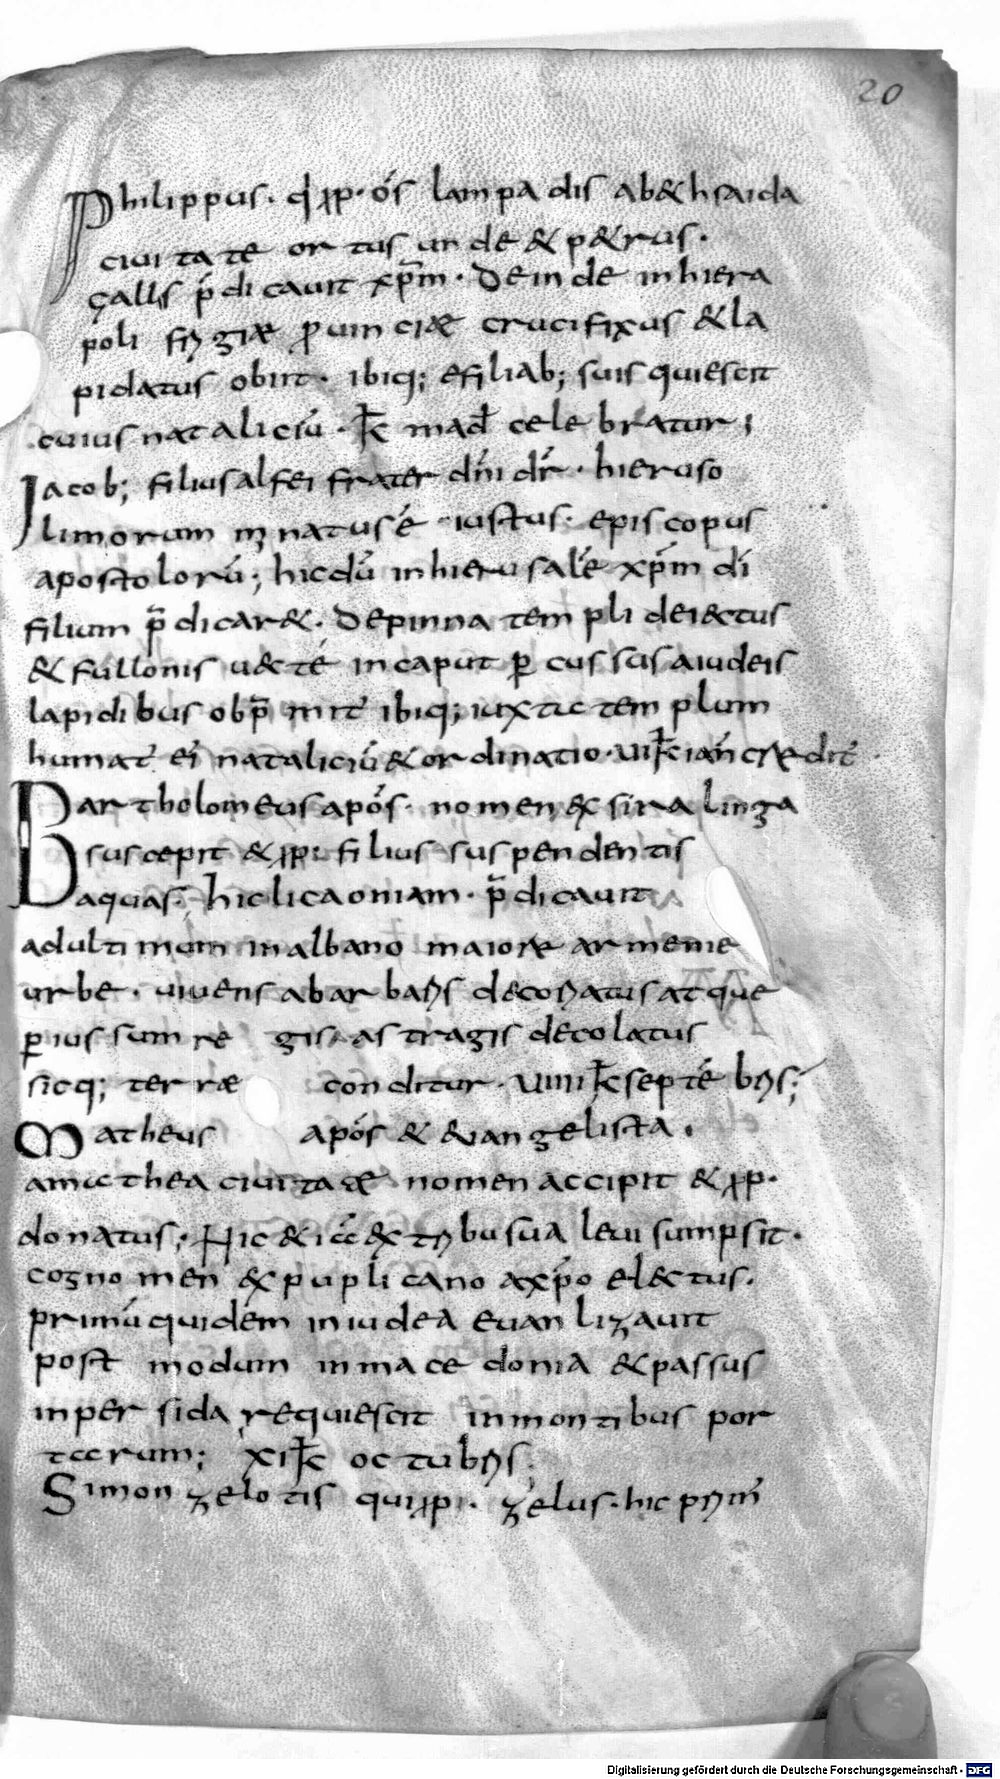 20
Philippus. q̄ ꝓp. o᷒s lampadis ab&hsaida
ciuitate ortus unde & p&rus.
ęallis p̄dicauit xp̄m. Deinde in hiera
poli frigiæ ꝓuinciæ crucifixus & la
pidatus obiit. ibiq; c̄ filiab; suis quiescit
cuius nataliciū. k̄ mad̄ celebratur;
Jacob; filius alfei frater dn̄i dr̄. hieruso
limorum . iustus. episcopus
apostolorū; hic dū in hierusalē xp̄m dī
filium p̄dicar&. De pinna templi deiectus
& fullonis uecte in caput ꝑcussus a iudeis
lapidibus obp̄mit̄ ibiq; iuxta templum
humat̄ ei natalicīu & ordinatio. ui k̄ ian̄ credit̄
Bartholomeus apo᷒s. nomen ex sira linga
suscepit & ꝓp: filius suspendentis
aquas; hic licaoniam. p̄dicauit
ad ultimum in albano maiore armenie
urbe. uiuens a barbaris decoriatus atque
ꝑ iussum regis astragis decolatus
sicq; terræ conditur. uiiii k̄ septēbris;
Matheus apo᷒s & euangelista.
amatthea ciuitate nomen accipit & ꝓp.
donatus; Hic & icc̄ ex tribu sua leui sumpsit.
cognomen ex puplicano a xp̄o electus.
primū quidem in iudea euanlizauit
postmodum in macedonia & passus
in persida requiescit in montibus por
torum; xi k̄ octubris.
Simon zelotis qui ꝓp. zelus. hic prim̄
Digitalisierung gefördert durch die Deutsche Forschungsgemeinschaft - DFG